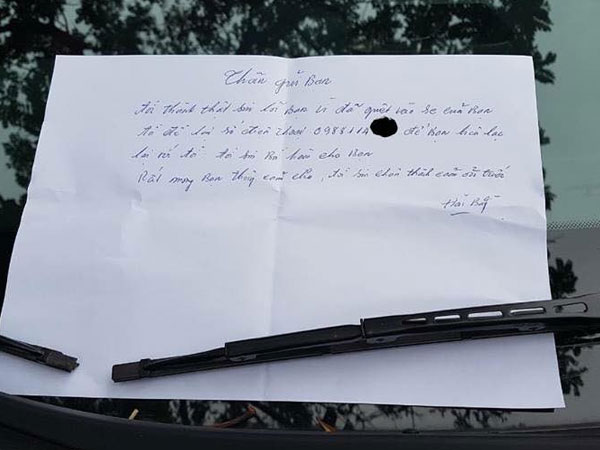 Thân gửi Bạn
tôi thành thật xin lỗi Bạn vì đã quệt vào xe của Bạn
tôi để lại số điện thoại 0988114 để Bạn liên lạc
lại với tôi tôi xin
Rất mong Bạn thông cảm cho, tôi xin chân thành cảm ơn trước